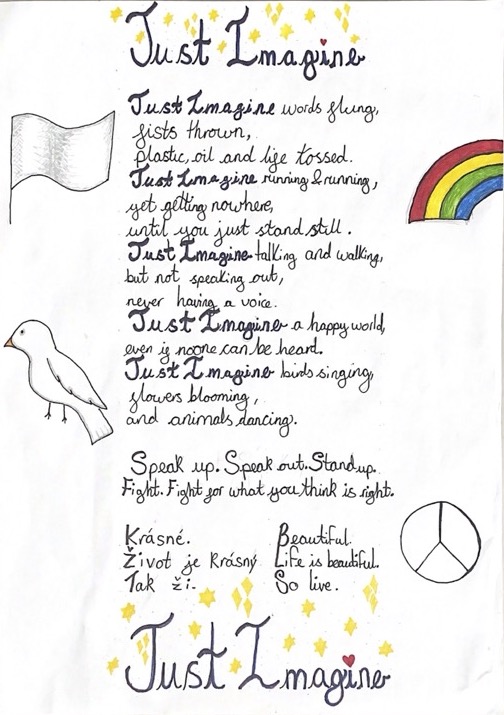 Just Imagine
Just Imagine words flung,
fists thrown,
plastic, oil and life tossed.
Just Imagine running & running,
yet getting nowhere,
until you just stand still.
Just Imagine talking and walking,
but not speaking out,
never having a voice.
Just Imagine a happy world,
even if noone can be heard.
Just Imagine birds singing,
flowers blooming,
and animals dancing.
Speak up. Speak out. Stand up.
Fight. Fight for what you think is right.
Krásné.
Život je Krásný
Tak ži.
Beautiful.
Life is beautiful.
So live.
Just Imagine